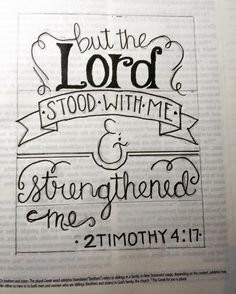 but the
Lord
STOOD·WITH·ME
&
strengthened
me
·2TIMOTHY 4:17·